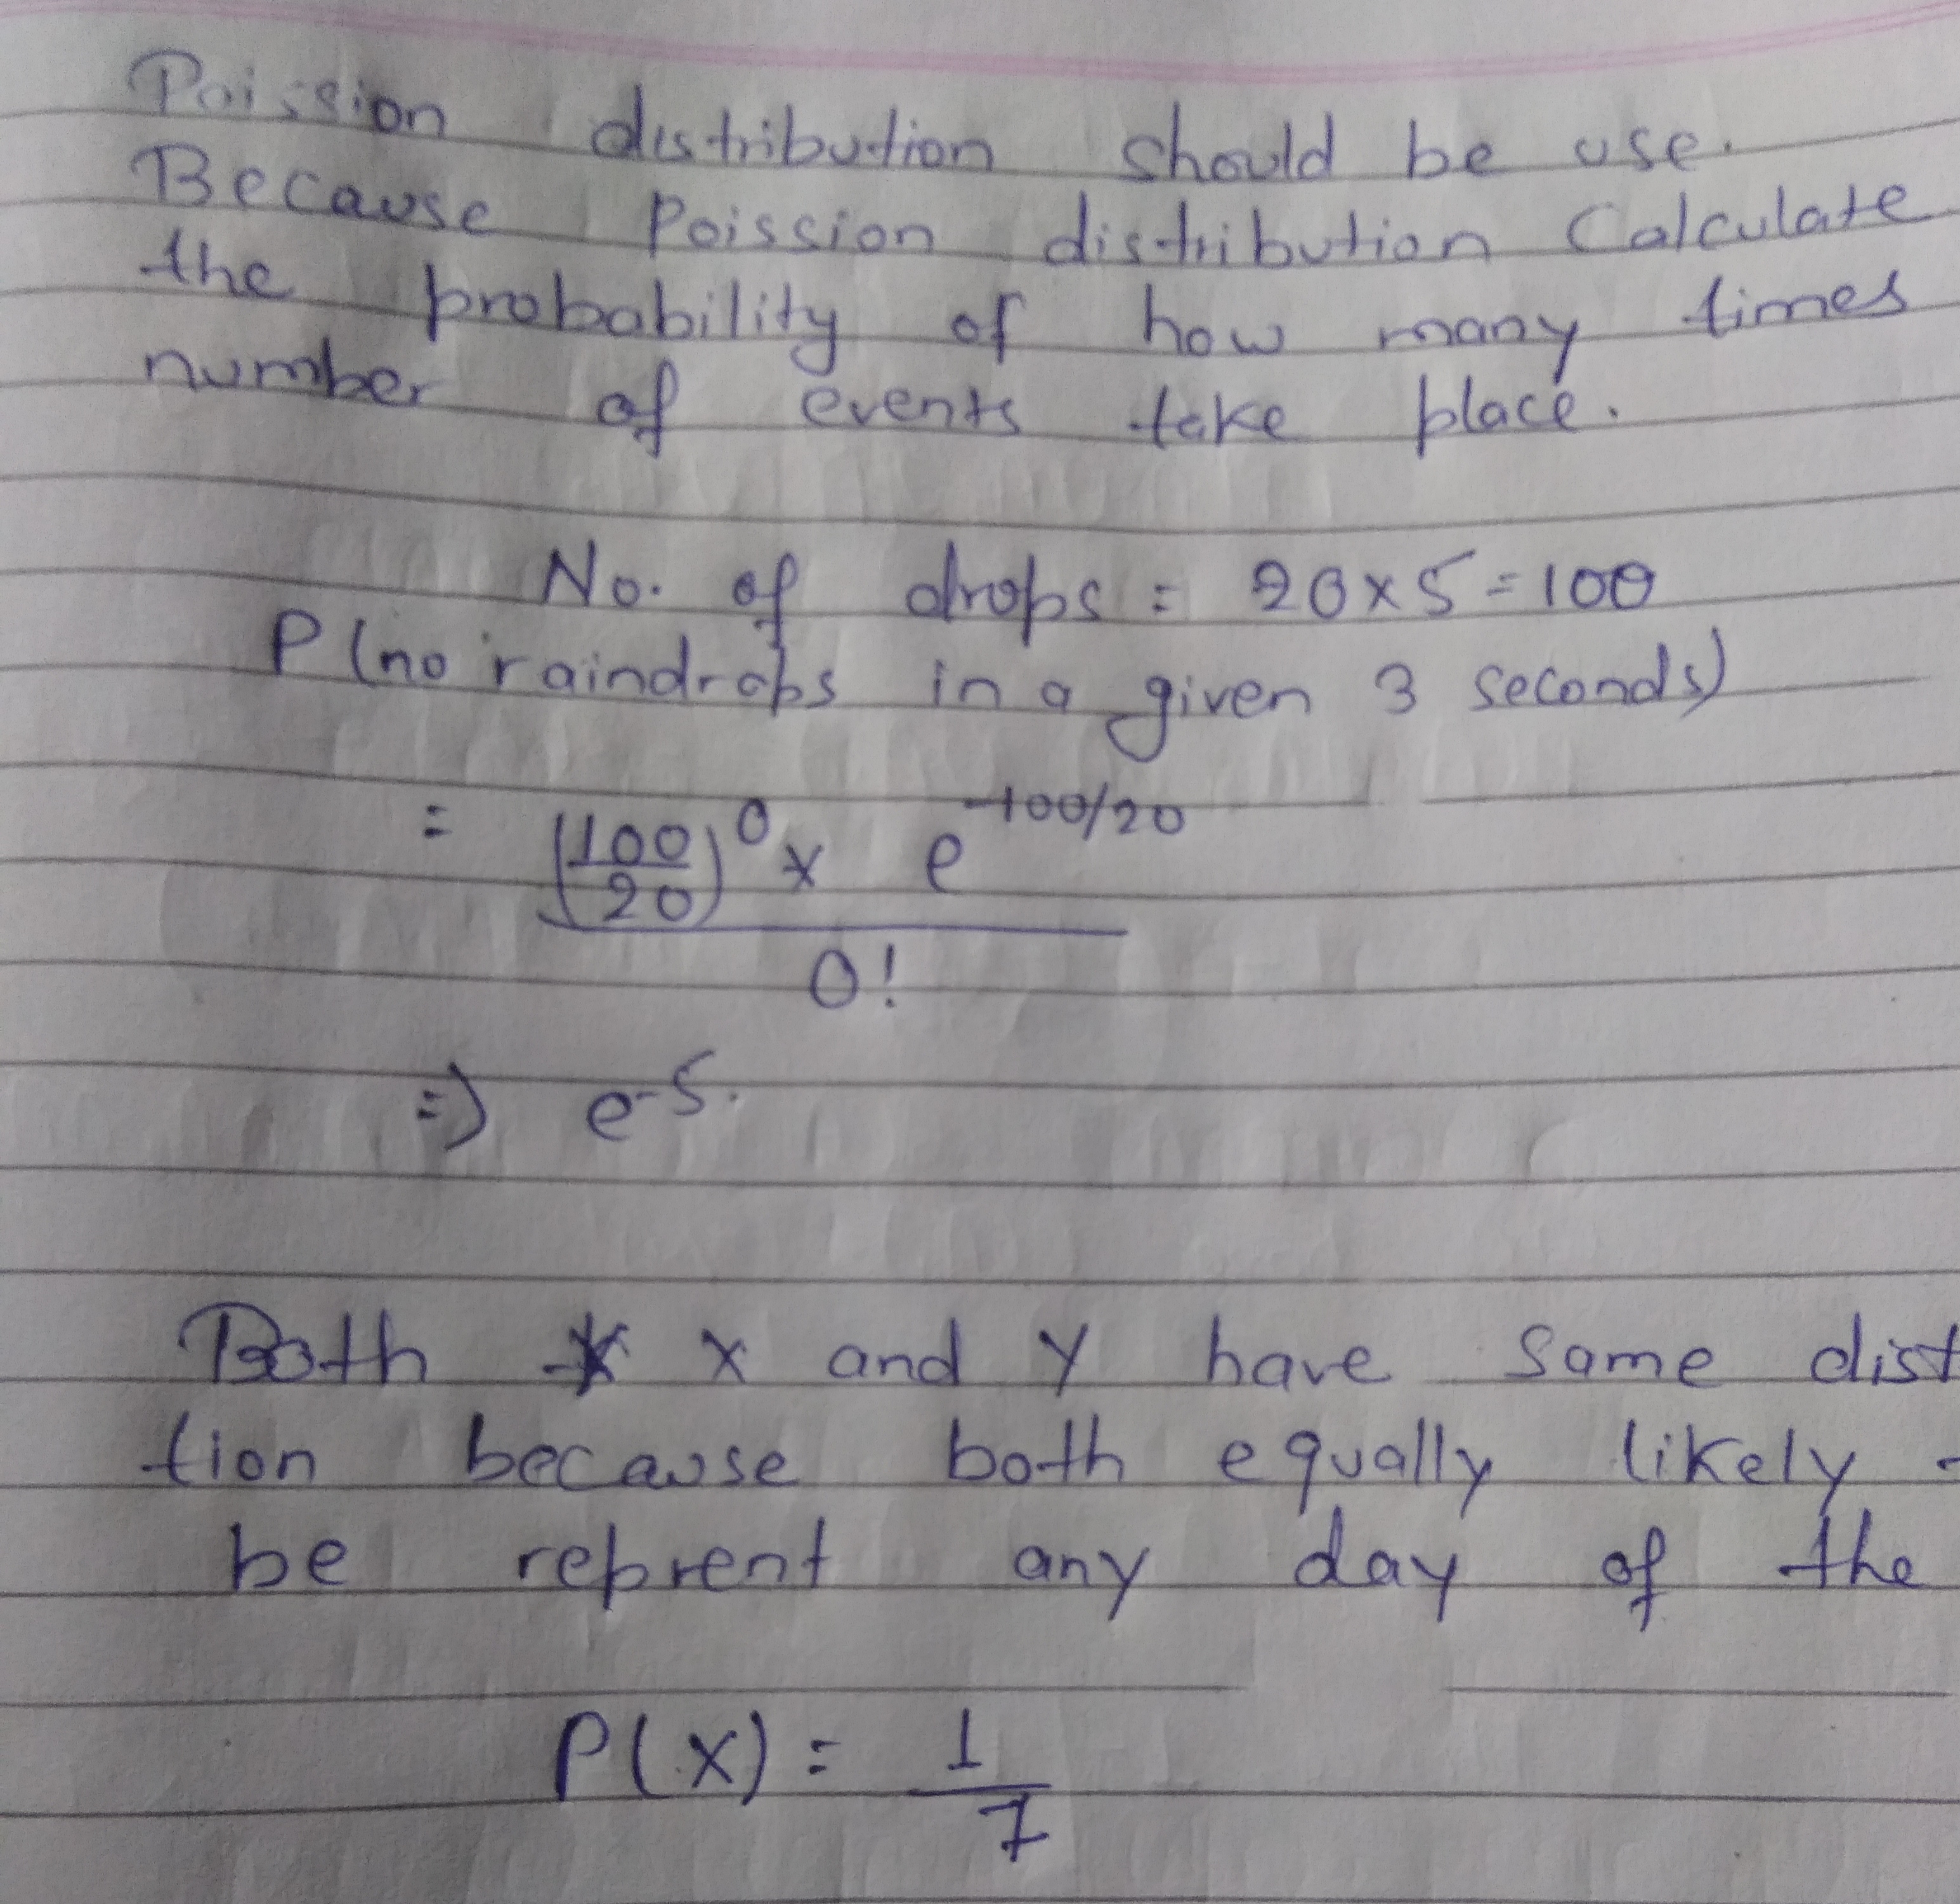 Poission distribution should be use.
Because Poission distribution Calculate
the probability of how many times
number of events take place.
No. of drops = 20 x 5 = 100
P(no raindrops in a given 3 seconds)
= (100/20)^0 x e^-100/20
0!
=) e^-5.
Both x and y have same dist
tion because both equally likely
be reprent any day of the
P(X) = 1/7